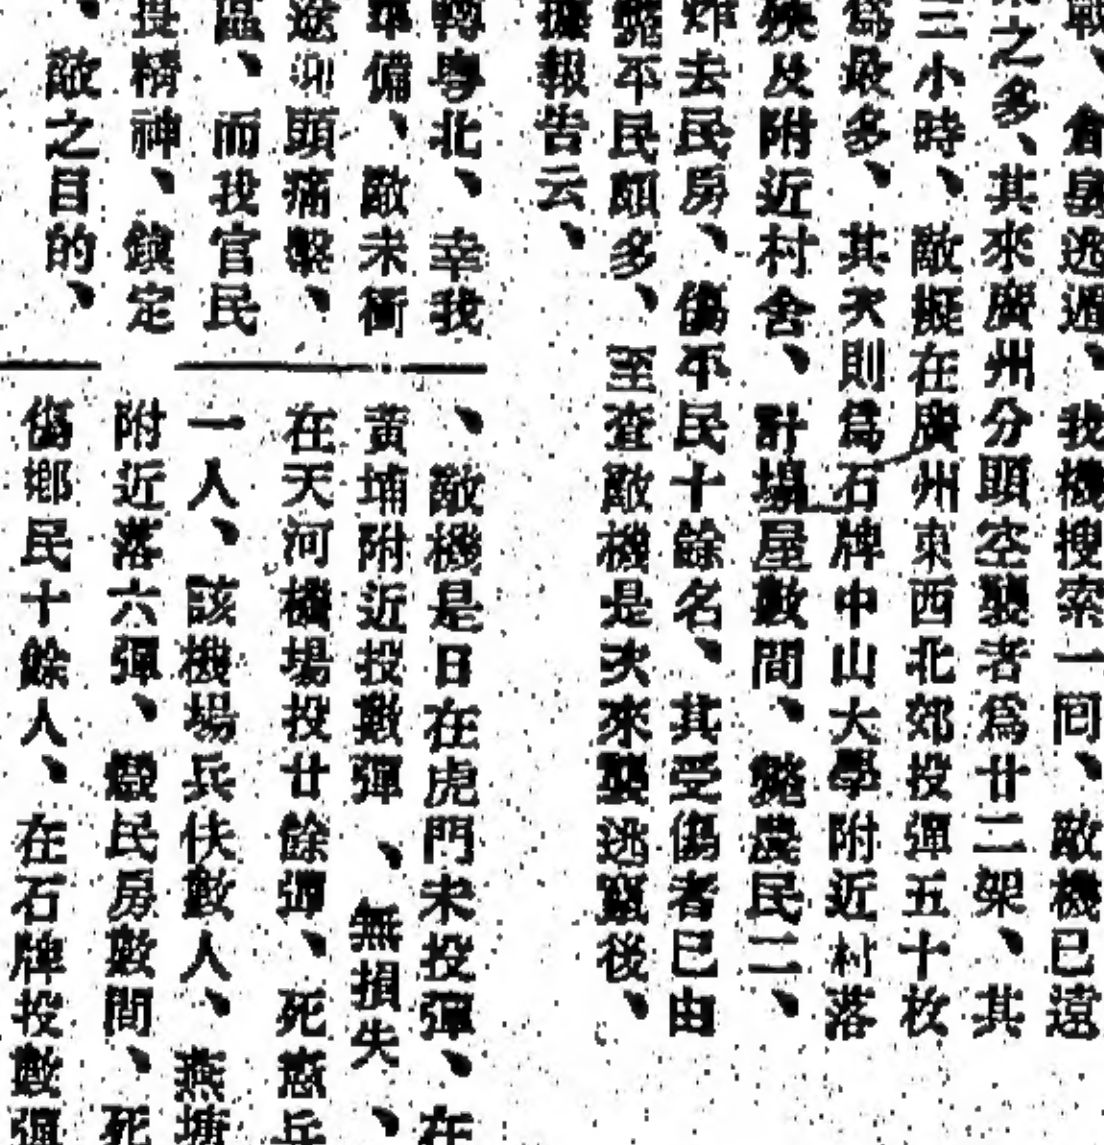 戰、倉皇逃遁、我機搜索一囘、敵機已遠
之多、其來廣州分頭空襲者爲廿二架、其
三小時、敵擬在廣州東西北郊投彈五十枚
爲最多、其次則爲石牌中山大學附近村落
殃及附近村舍、計塲屋數間、斃農民二、
炸去民房、傷不民十餘名、其受傷者已由
斃平民頗多、至查敵機是次來襲逃竄後、
據報告云、
轉粤北、幸我
準備、敵未衝
途迎頭痛擊、
區、而我官民
提精神、鎮定
、敵之目的、
、敵機是日在虎門未投彈、在
黃埔附近投數彈、無損失、
在天河機場投廿餘彈、死憲兵
一人、該機場兵伕數人、燕塘
附近落六彈、毀民房數間、死
傷鄉民十餘人、在石牌投數彈